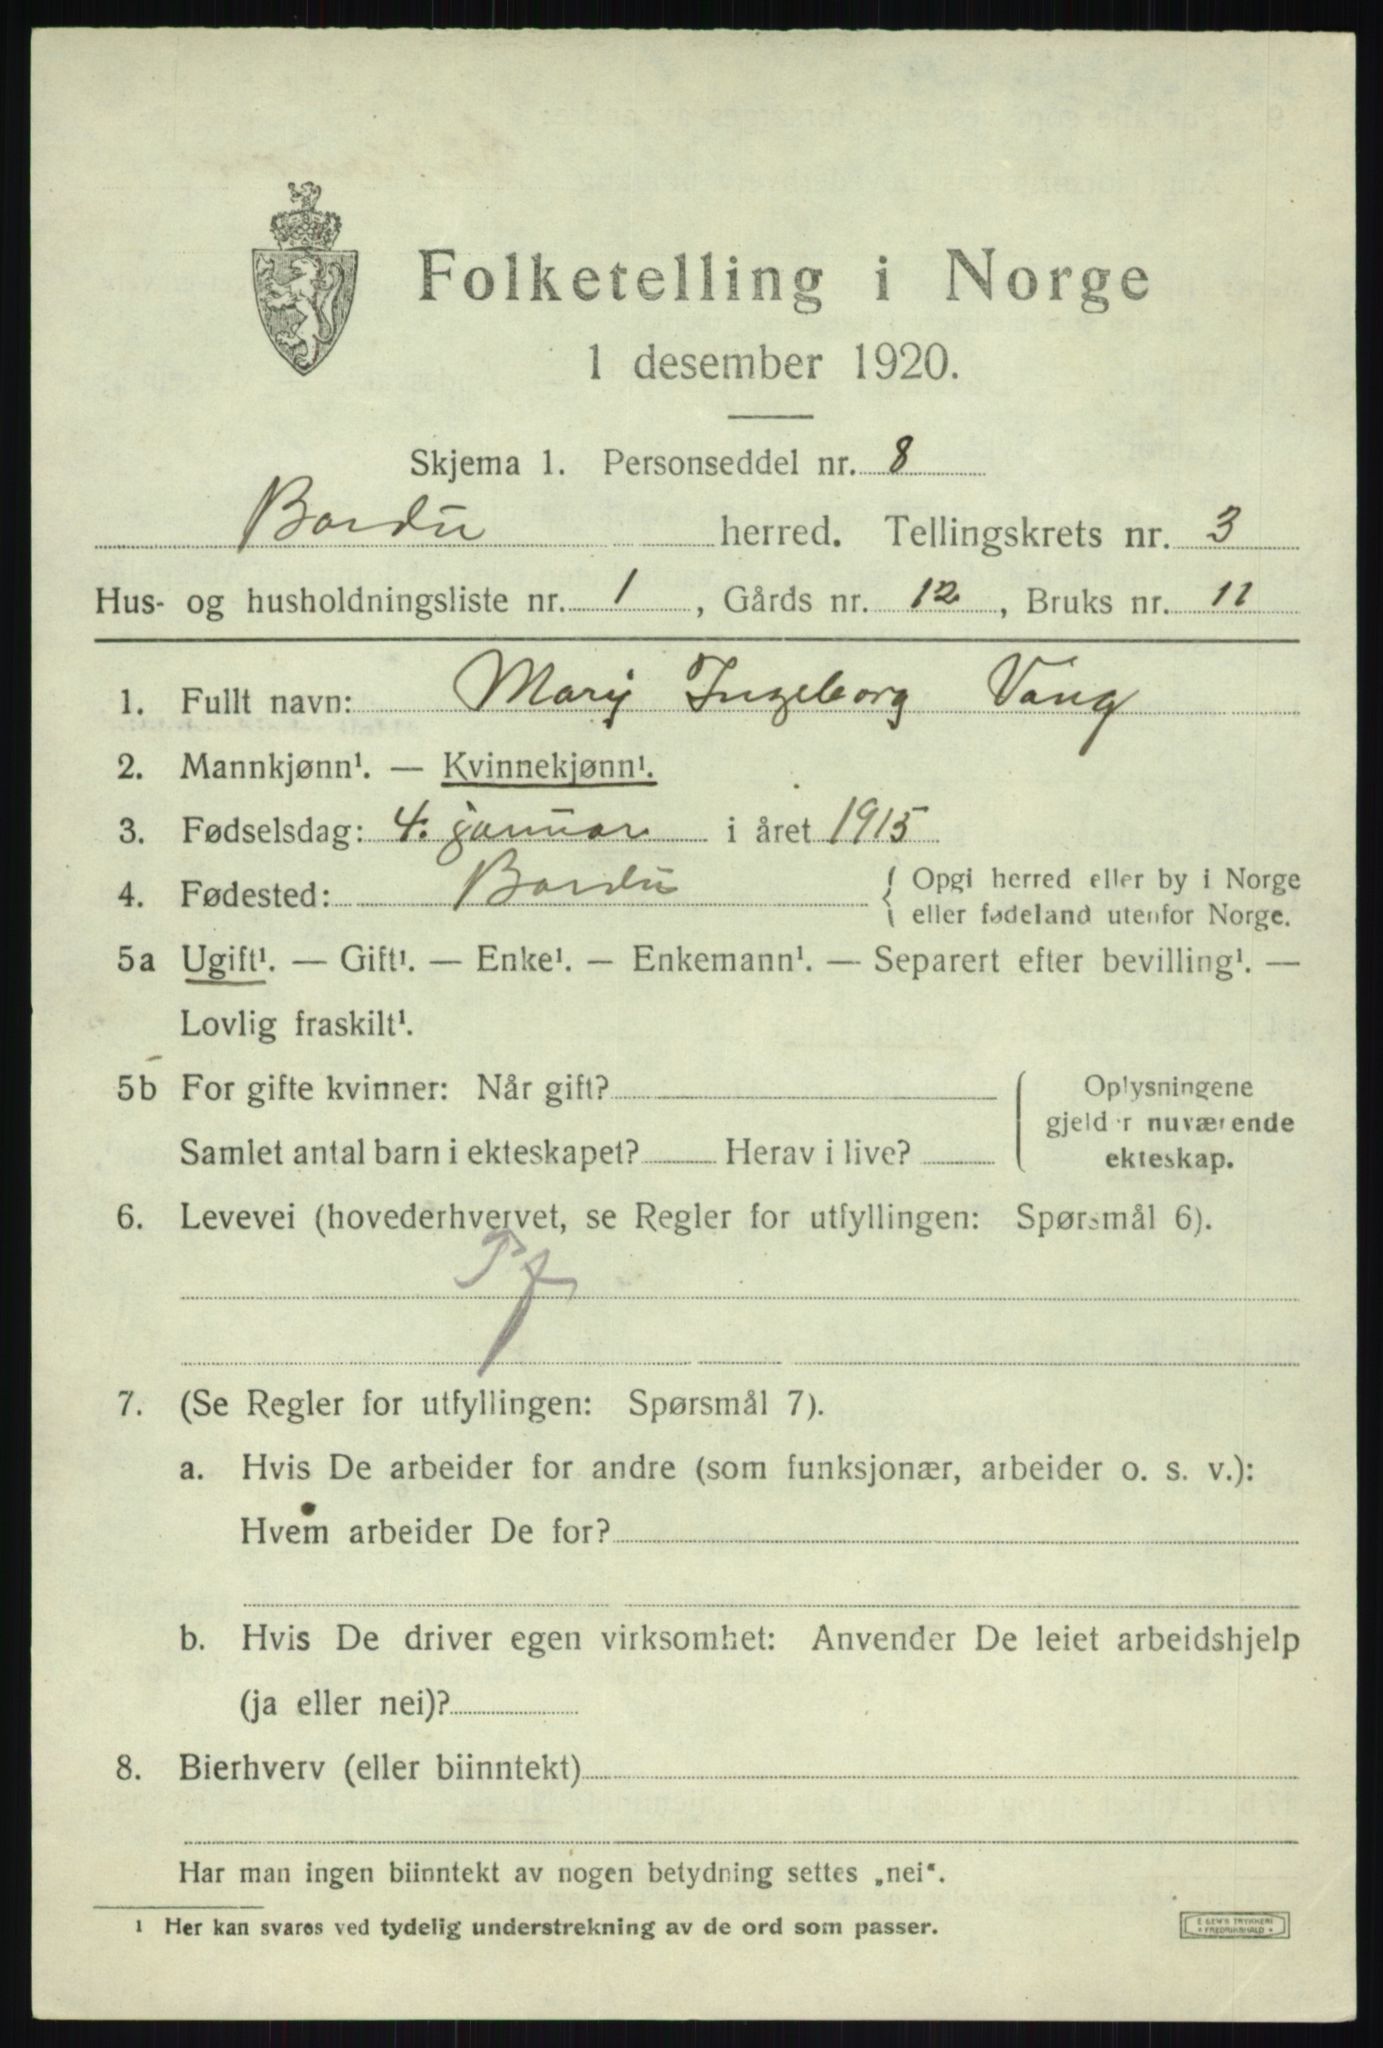 Folketelling i Norge
1 desember 1920.
Skjema 1. Personseddel nr. 8
Bardu herred. Tellingskrets nr. 3
Hus- og husholdningsliste nr. 1, Gårds nr. 12, Bruks nr. 11
1. Fullt navn: Mary Ingeborg Vang
2. Mannkjønn¹. — Kvinnekjønn¹.
3. Fødselsdag: 4. januar i året 1915
4. Fødested: Bardu { Opgi herred eller by i Norge
eller fødeland utenfor Norge.
5a Ugift¹. — Gift¹. — Enke¹. — Enkemann¹. — Separert efter bevilling¹. —
Lovlig fraskilt¹.
5b For gifte kvinner: Når gift? Oplysningene
gjelder nuværende
Samlet antal barn i ekteskapet? Herav i live? ekteskap.
6. Levevei (hovederhvervet, se Regler for utfyllingen: Spørsmål 6).
7. (Se Regler for utfyllingen: Spørsmål 7).
a. Hvis De arbeider for andre (som funksjonær, arbeider o. s. v.):
Hvem arbeider De for?
b. Hvis De driver egen virksomhet: Anvender De leiet arbeidshjelp
(ja eller nei)?
8. Bierhverv (eller biinntekt)
Har man ingen biinntekt av nogen betydning settes „nei“.
¹ Her kan svares ved tydelig understrekning av de ord som passer.
E SEM'S TRYKKERI
FREDRIKSHALD